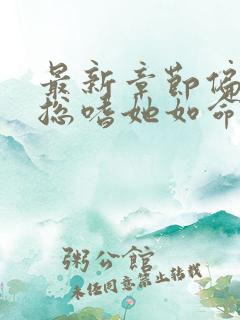 最新章節偏
總嗜她如命
粥公館
未经同意禁止转载